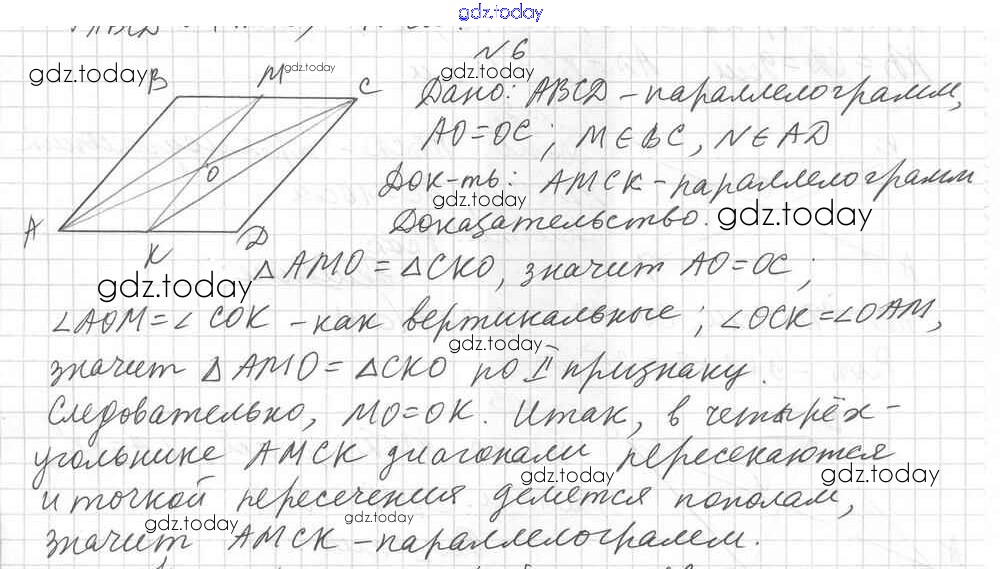 gdz.today
№6
gdz.today
B M gdz.today C
gdz.today
Дано: ABCD – параллелограмм,
AO=OC; M∈BC, N∈AD
O
Док-ть: AMCK – параллелограмм
gdz.today
A K D
Доказательство. gdz.today
△AMO = △CKO, значит AO=OC;
gdz.today
∠AOM=∠COK – как вертикальные; ∠OCK=∠OAM,
gdz.today
значит △AMO = △CKO по II признаку.
Следовательно, MO=OK. Итак, в четырёх-
угольнике AMCK диагонали пересекаются
gdz.today gdz.today
и точкой пересечения делятся пополам,
gdz.today gdz.today
значит AMCK – параллелограмм.